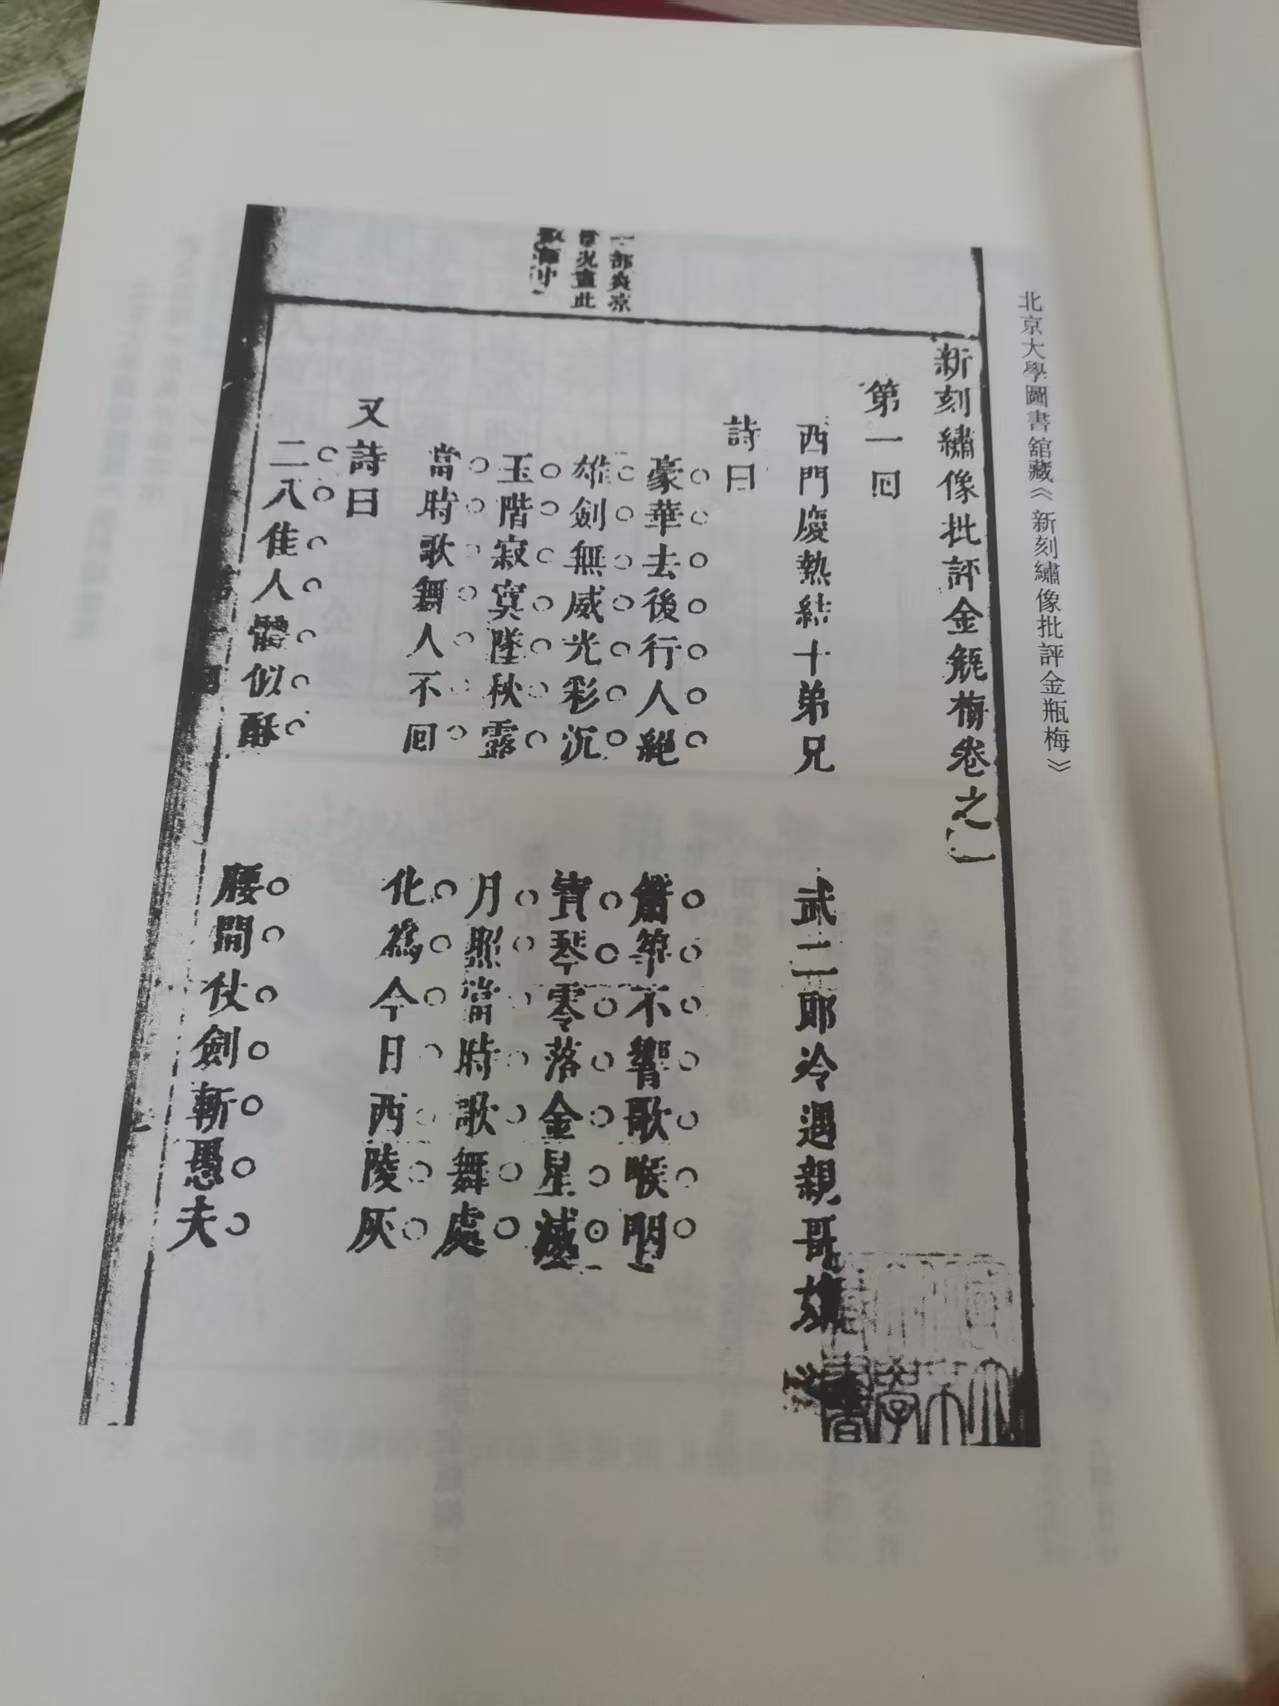 北京大學圖書舘藏《新刻繡像批評金瓶梅》
新刻繡像批評金甁梅卷之一
第一囘
西門慶熱結十弟兄　武二郎冷遇親哥嫂
詩曰
豪華去後行人絕　簫箏不響歌喉咽
雄劍無威光彩沉　寶琴零落金星滅
玉階寂寞墜秋露　月照當時歌舞處
當時歌舞人不囘　化爲今日西陵灰
又詩曰
二八佳人體似酥　腰間仗劍斬愚夫
一部炎凉
景况盡此
數語中